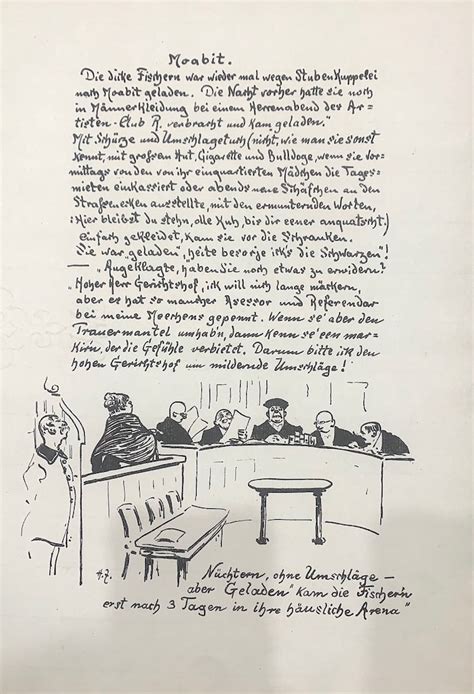 Moabit.
Die dicke Fischern war wieder mal wegen Stubenkuppelei
nach Moabit geladen. Die Nacht vorher hatte sie noch
in Männerkleidung bei einem Herrenabend der Ar=
tisten-Club R. verbracht und kam „geladen."
Mit Schürze und Umschlagetuch (nicht, wie man sie sonst
kennt, mit grossem Hut, Cigarette und Bulldoge, wenn sie vor=
mittags von den von ihr einquartierten Mädchen die Tages=
mieten einkassiert oder abends neue Schäfchen an den
Strassenecken ausstellte, mit den ermunternden Worten,
„Hier bleibst du stehn, olle Kuh, bis dir eener anquatscht.)
einfach gekleidet, kam sie vor die Schranken.
Sie war „geladen", „heite besorje icks die Schwarzen"!
— „Angeklagte, haben Sie noch etwas zu erwidern?"
„Hoher Herr Gerichtshof, ick will nich lange märkern,
aber es hat so mancher Asessor und Referendar
bei meine Moerchens gepennt. Wenn se' aber den
Trauermantel umhab'n, dann kenn se' een mar=
kir'n, der die Gefühle verbietet. Darum bitte ick den
hohen Gerichtshof um mildernde Umschläge!
Nüchtern, ohne Umschläge —
aber „Geladen" kam die Fischer'n
erst nach 3 Tagen in ihre häusliche Arena"